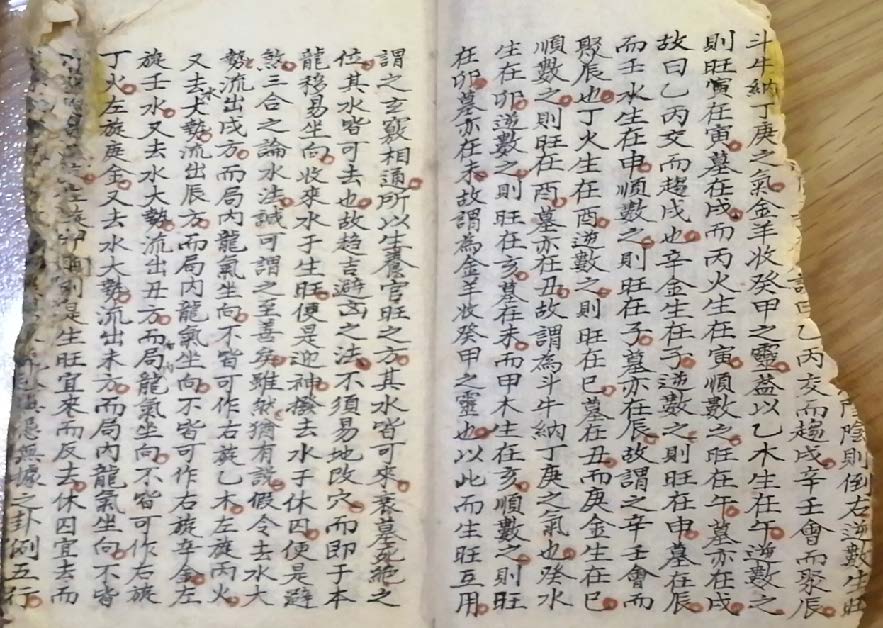 陰則倒右逆數生旺
曰乙丙交而趨戌辛壬會而聚辰
斗牛納丁庚之氣金羊收癸甲之靈蓋以乙木生在午逆數之
則旺寅在寅墓在戌而丙火生在寅順數之旺在午墓亦在戌
故曰乙丙交而趨戌也辛金生在子逆數之則旺在申墓在辰
而壬水生在申順數之則旺在子墓亦在辰故謂之辛壬會而
聚辰也丁火生在酉逆數之則旺在巳墓在丑而庚金生在巳
順數之則旺在酉墓亦在丑故謂為斗牛納丁庚之氣也癸水
生在卯逆數之則旺在亥墓在未而甲木生在亥順數之則旺
在卯墓亦在未故謂為金羊收癸甲之靈也以此而生旺互用
謂之玄竅相通所以生養官旺之方其水皆可來衰墓死絕之
位其水皆可去也故趨吉避凶之法不須易地改穴而即于本
龍移易坐向收來水于生旺便是迎神撥去水于休囚便是避
煞三合之論水法誠可謂之至善矣雖然猶有說假令去水大
勢流出戌方而局內龍氣坐向不皆可作右旋乙木左旋丙火
又去水大勢流出辰方而局內龍氣坐向不皆可作右旋辛金左
旋壬水又去水大勢流出丑方而局龍氣坐向不皆可作右旋
丁火左旋庚金又去水大勢流出未方而局內龍氣坐向不皆
生旺宜來而反去休囚宜去而
無據之卦例五行